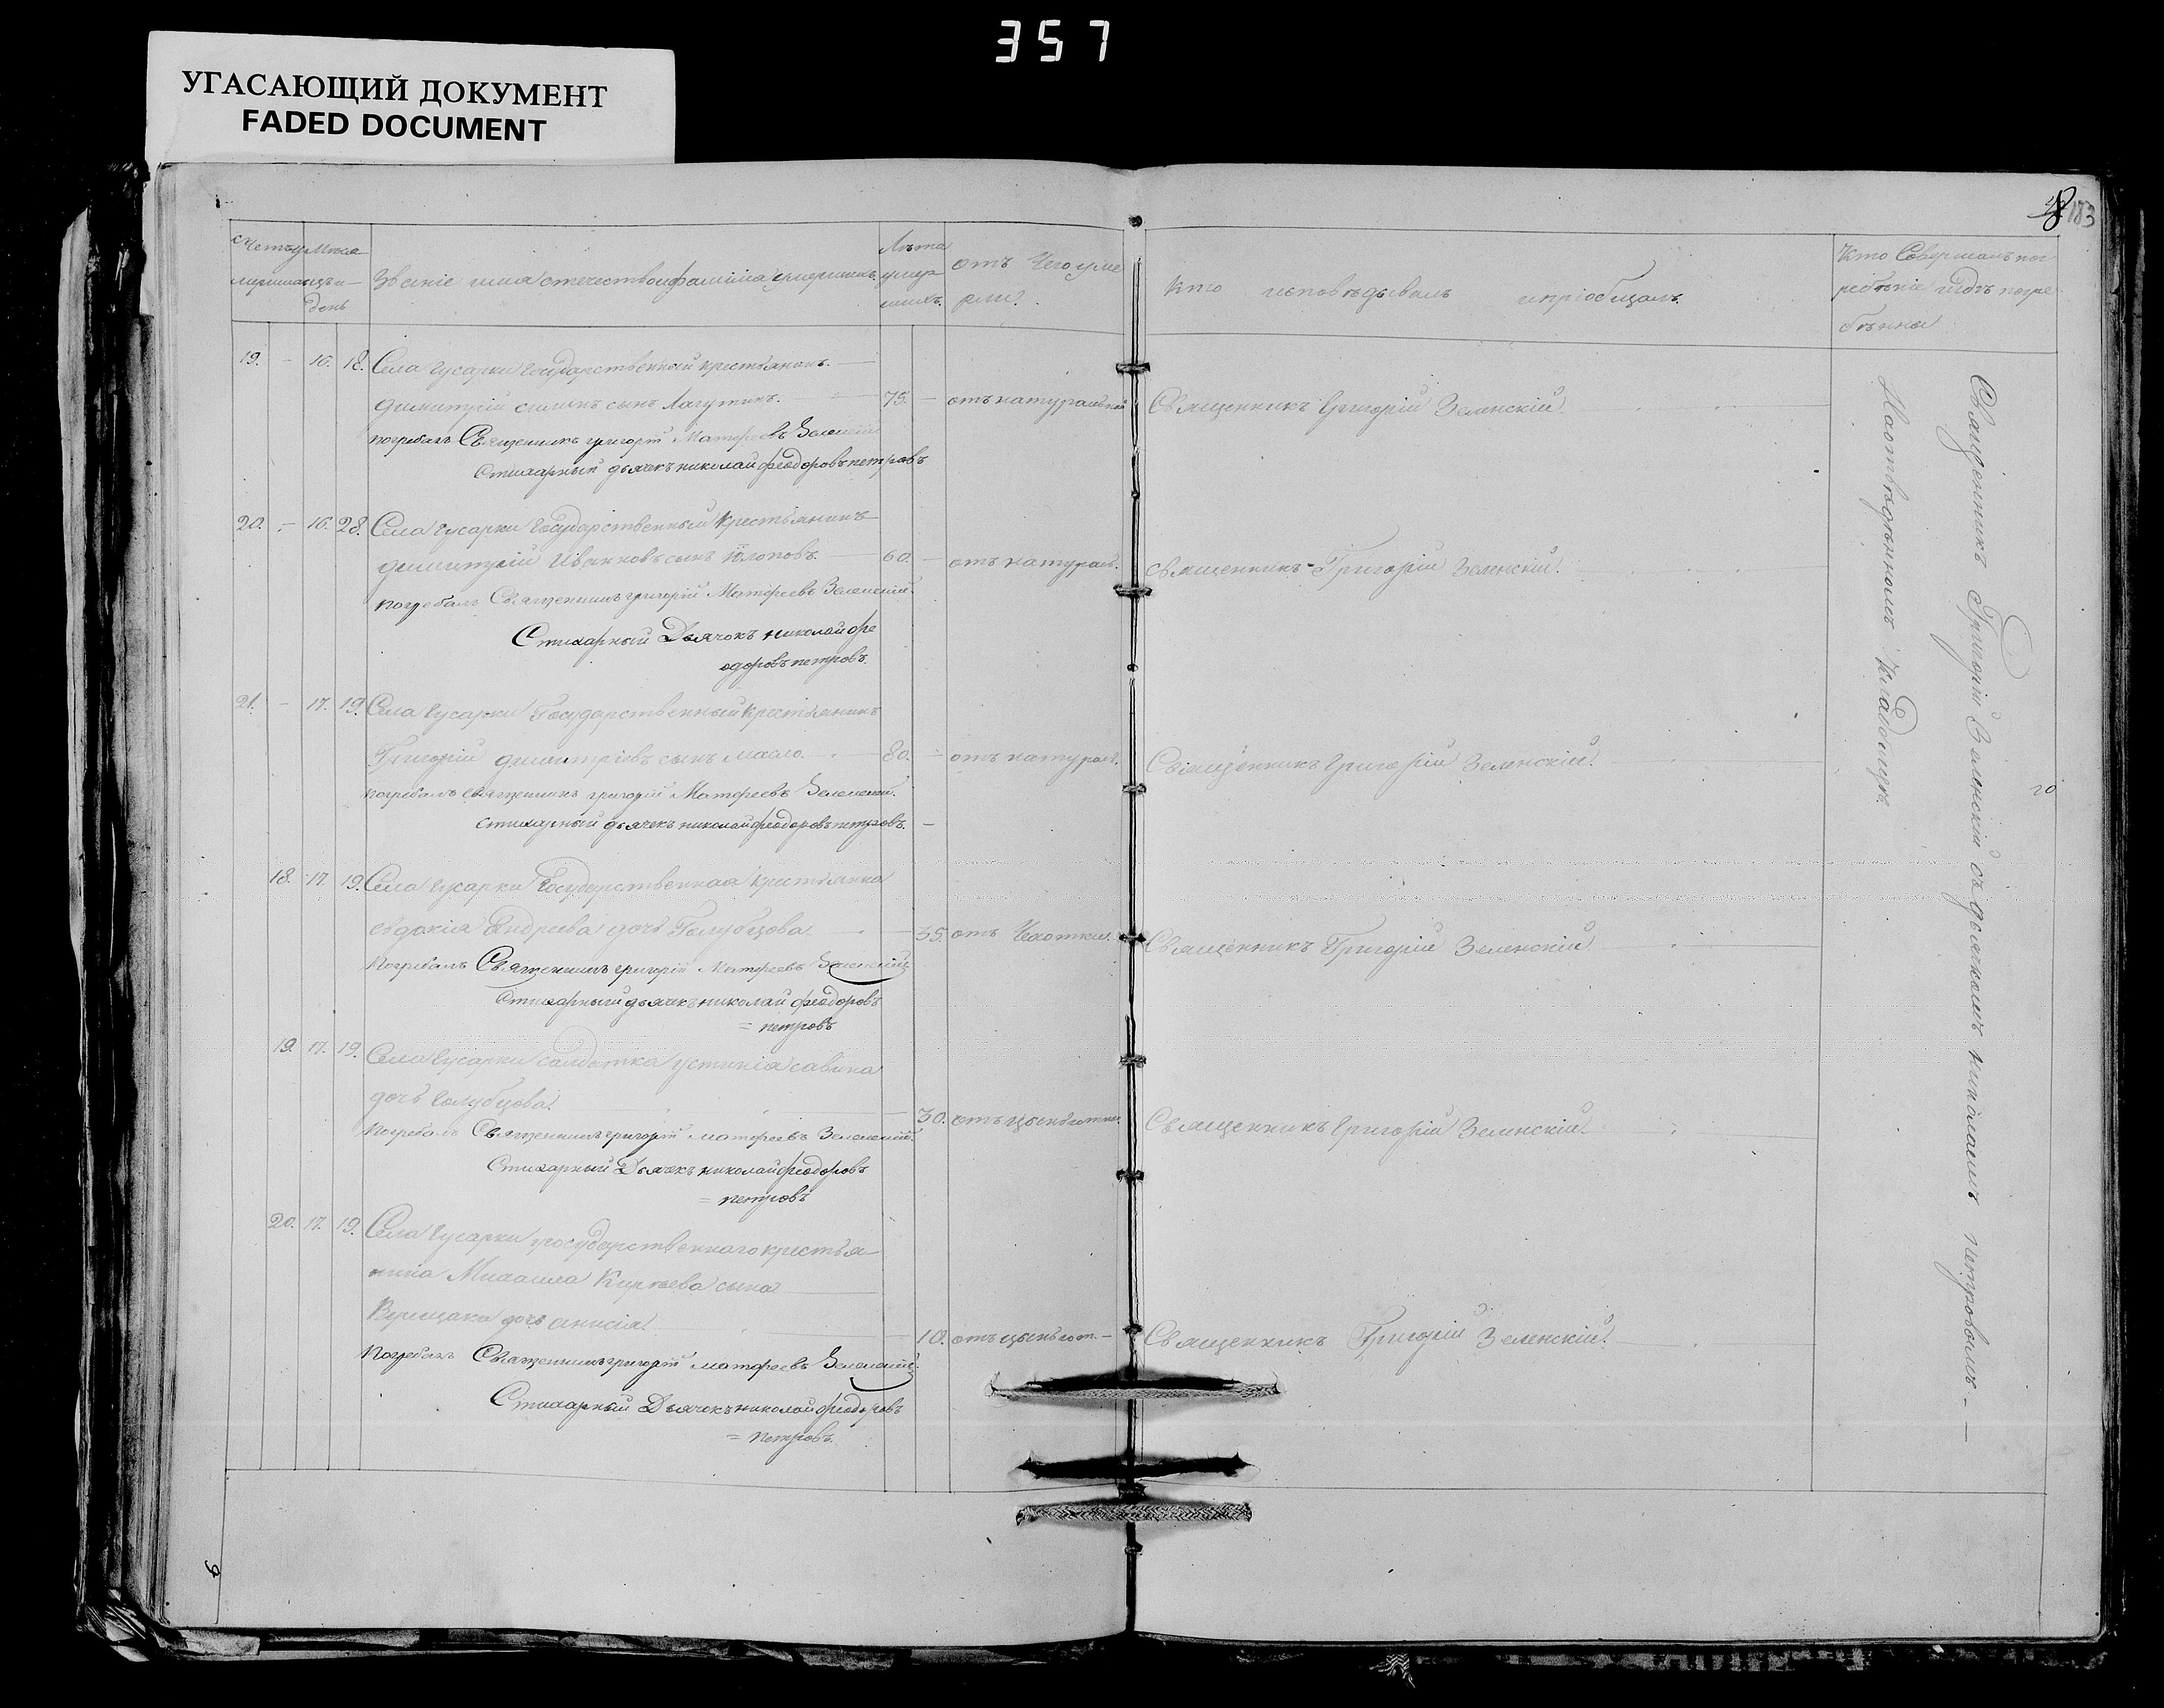 357
УГАСАЮЩИЙ ДОКУМЕНТ
FADED DOCUMENT
8 183
Счетъ умершихъ
Мѣсяцъ и день
Званіе имя отечество и фамилія умершихъ.
Лѣта умершихъ.
отъ Чего умерли.
Кто исповѣдывалъ и пріобщалъ.
Кто Совершалъ погребѣніе и гдѣ погребѣны
19. – 16. 18. Села Гусарки Государственный крестьянинъ
димитрій сынъ Лагутинъ. 75. – отъ натуральной Священникъ Григорій Зеленскій.
погребалъ Священникъ григорій Матфеевъ Зеленскій
Стихарный дьячекъ николай феодоровъ петровъ
20. – 16. 28. Села Гусарки Государственный Крестьянинъ
димитрій Ивановъ сынъ 60. – отъ натурал. священникъ Григорій Зеленскій.
погребалъ Священникъ григорій Матфеевъ Зеленскій.
Стихарный Дьячокъ николай фе
одоровъ петровъ.
21. – 17. 19. Села Гусарки Государственный Крестьянинъ
Григорій димитріевъ сынъ масло. 80. – отъ натурал. Священникъ Григорій Зеленскій.
погребалъ священникъ григорій Матфеевъ Зеленскій.
стихарный дьячекъ николай феодоровъ петровъ. –
18. 17. 19. Села Гусарки Государственная Крестьянка
евдокія Андреева дочь Голубцова. 35. отъ Чахотки. Священникъ Григорій Зеленскій
Погребалъ Священникъ григорій Матфеевъ Зеленскій
Стихарный дьячекъ николай феодоровъ
= петровъ
19. 17. 19. Села Гусарки солдатка устинія савина
дочь Голубцова. 30. отъ Священникъ Григорій Зеленскій.
Погребалъ Священникъ григорій матфеевъ Зеленскій.
Стихарный Дьячекъ николай феодоровъ
= петровъ
20. 17. 19. Села Гусарки государственнаго крестья
нина Михаила сына
дочь анисія. 10. отъ Священникъ Григорій Зеленскій.
Погребалъ Священникъ григорій матфеевъ Зеленскій
Стихарный Дьячекъ николай феодоровъ
= петровъ.
Священникъ Григорій Зеленскій съ дьячкомъ николаемъ петровымъ. –
На отвѣденномъ Кладбищѣ.
20
9